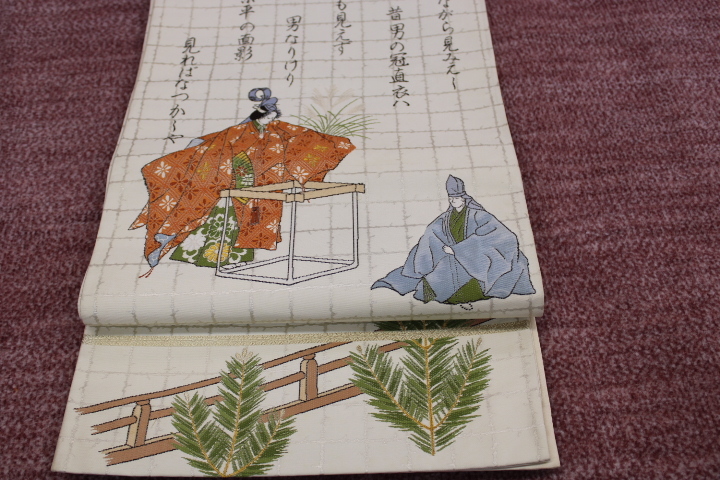 ながら見みえし
昔男の冠直衣ハ
も見えす
男なりけり
平の面影
見ればなつかしや